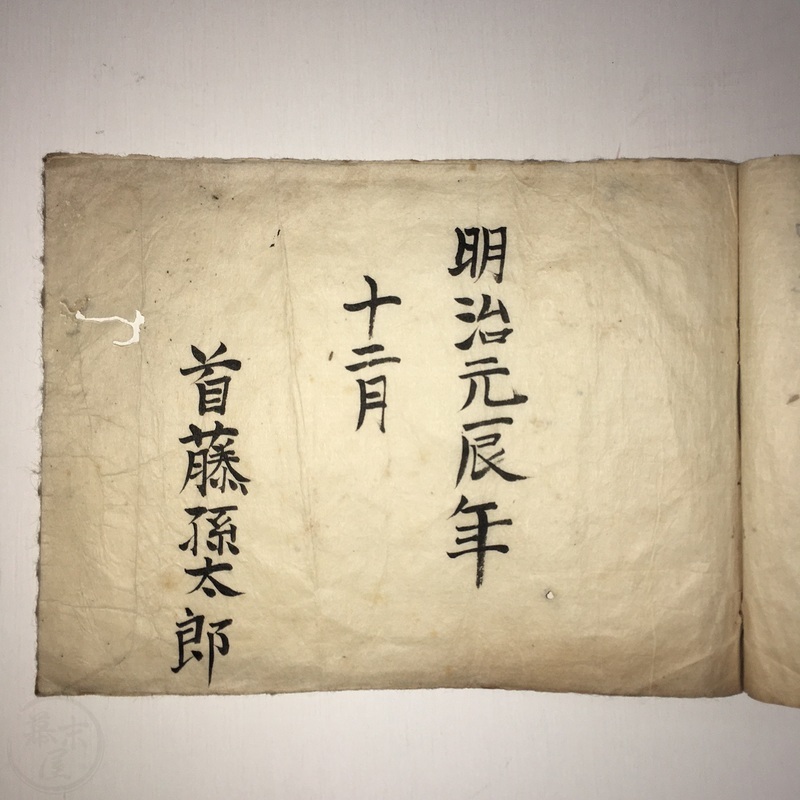 明治元辰年
十二月
首藤孫太郎
幕末屋